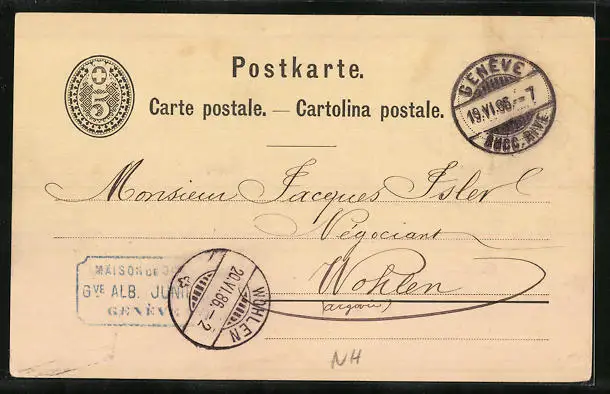 5
Postkarte.
Carte postale. — Cartolina postale.
GENÈVE
19.VI.86.–7
SUCC. RIVE
Monsieur Jacques Isler
Négociant
Wohlen
(argovie)
MAISON DE
GVE ALB. JUN
GENÈVE
20.VI.86.–2
WOHLEN
NH